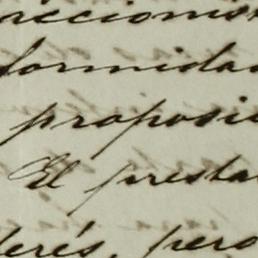 accionis
formida
proposi
El presta
terés, pero